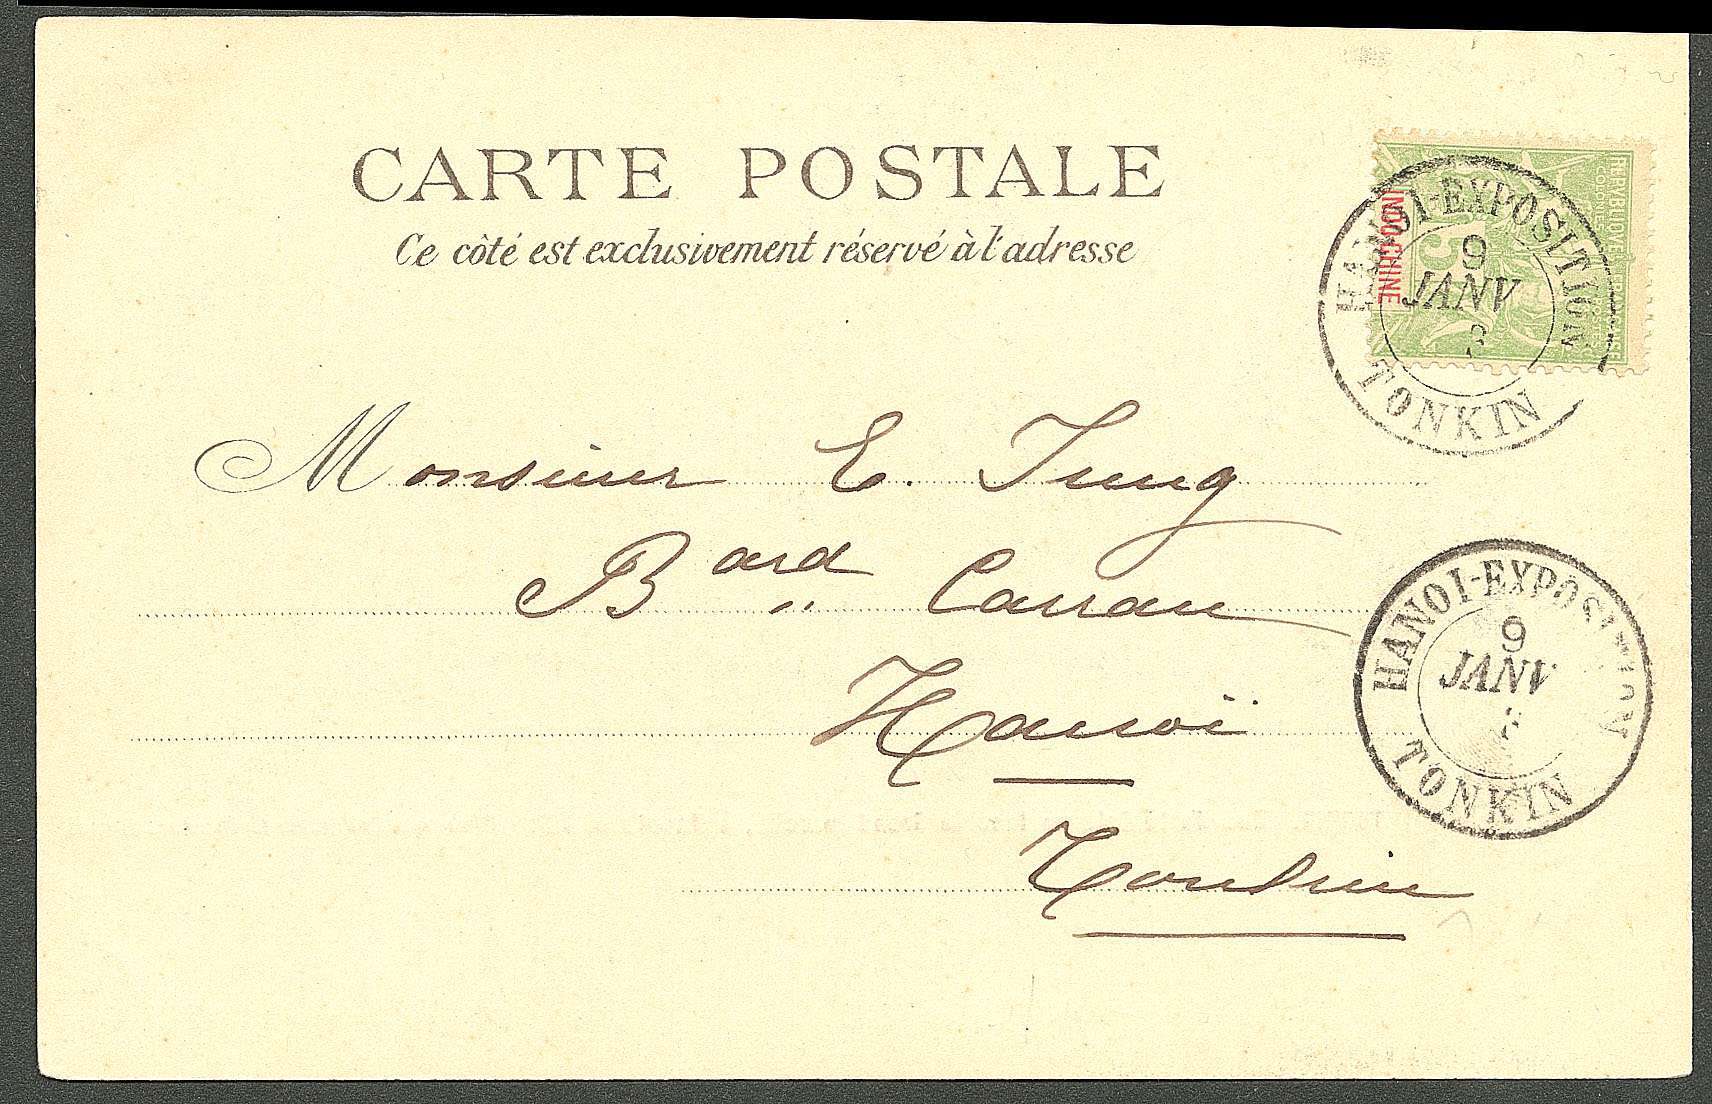 CARTE POSTALE
Ce côté est exclusivement réservé à l'adresse
REPVBLIQVE FRANÇAISE
COLONIES
INDO-CHINE
5
HANOI-EXPOSITION
9
JANV
3
TONKIN
Monsieur E. Jung
Bard Carrau
Hanoï
Tonkin
HANOI-EXPOSITION
9
JANV
3
TONKIN